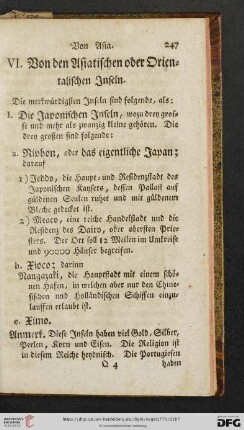 Von Asia.
247
VI. Von den Asiatischen oder Orien-
talischen Inseln.
Die merkwürdigsten Inseln sind folgende, als:
1. Die Japonischen Inseln, wozu drey gros-
se und mehr als zwanzig kleine gehören. Die
drey grossen sind folgende:
a. Niphon, oder das eigentliche Japan;
darauf
1) Jeddo, die Haupt- und Residenzstadt des
Japonischen Kaysers, dessen Pallast auf
güldenen Seulen ruhet und mit güldenem
Bleche gedecket ist.
2) Meaco, eine reiche Handelstadt und die
Residenz des Dairo, oder obersten Prie-
sters. Der Ort soll 12 Meilen im Umkreise
und 90000 Häuser begreifen.
b. Xicoco; darinn
Nangazaki, die Hauptstadt mit einem schö-
nen Hafen, in welchen aber nur den Chine-
sischen und Holländischen Schiffen einzu-
lauffen erlaubt ist.
c. Ximo.
Anmerk. Diese Inseln haben viel Gold, Silber,
Perlen, Korn und Eisen. Die Religion ist
in diesem Reiche heydnisch. Die Portugiesen
Q 4
haben